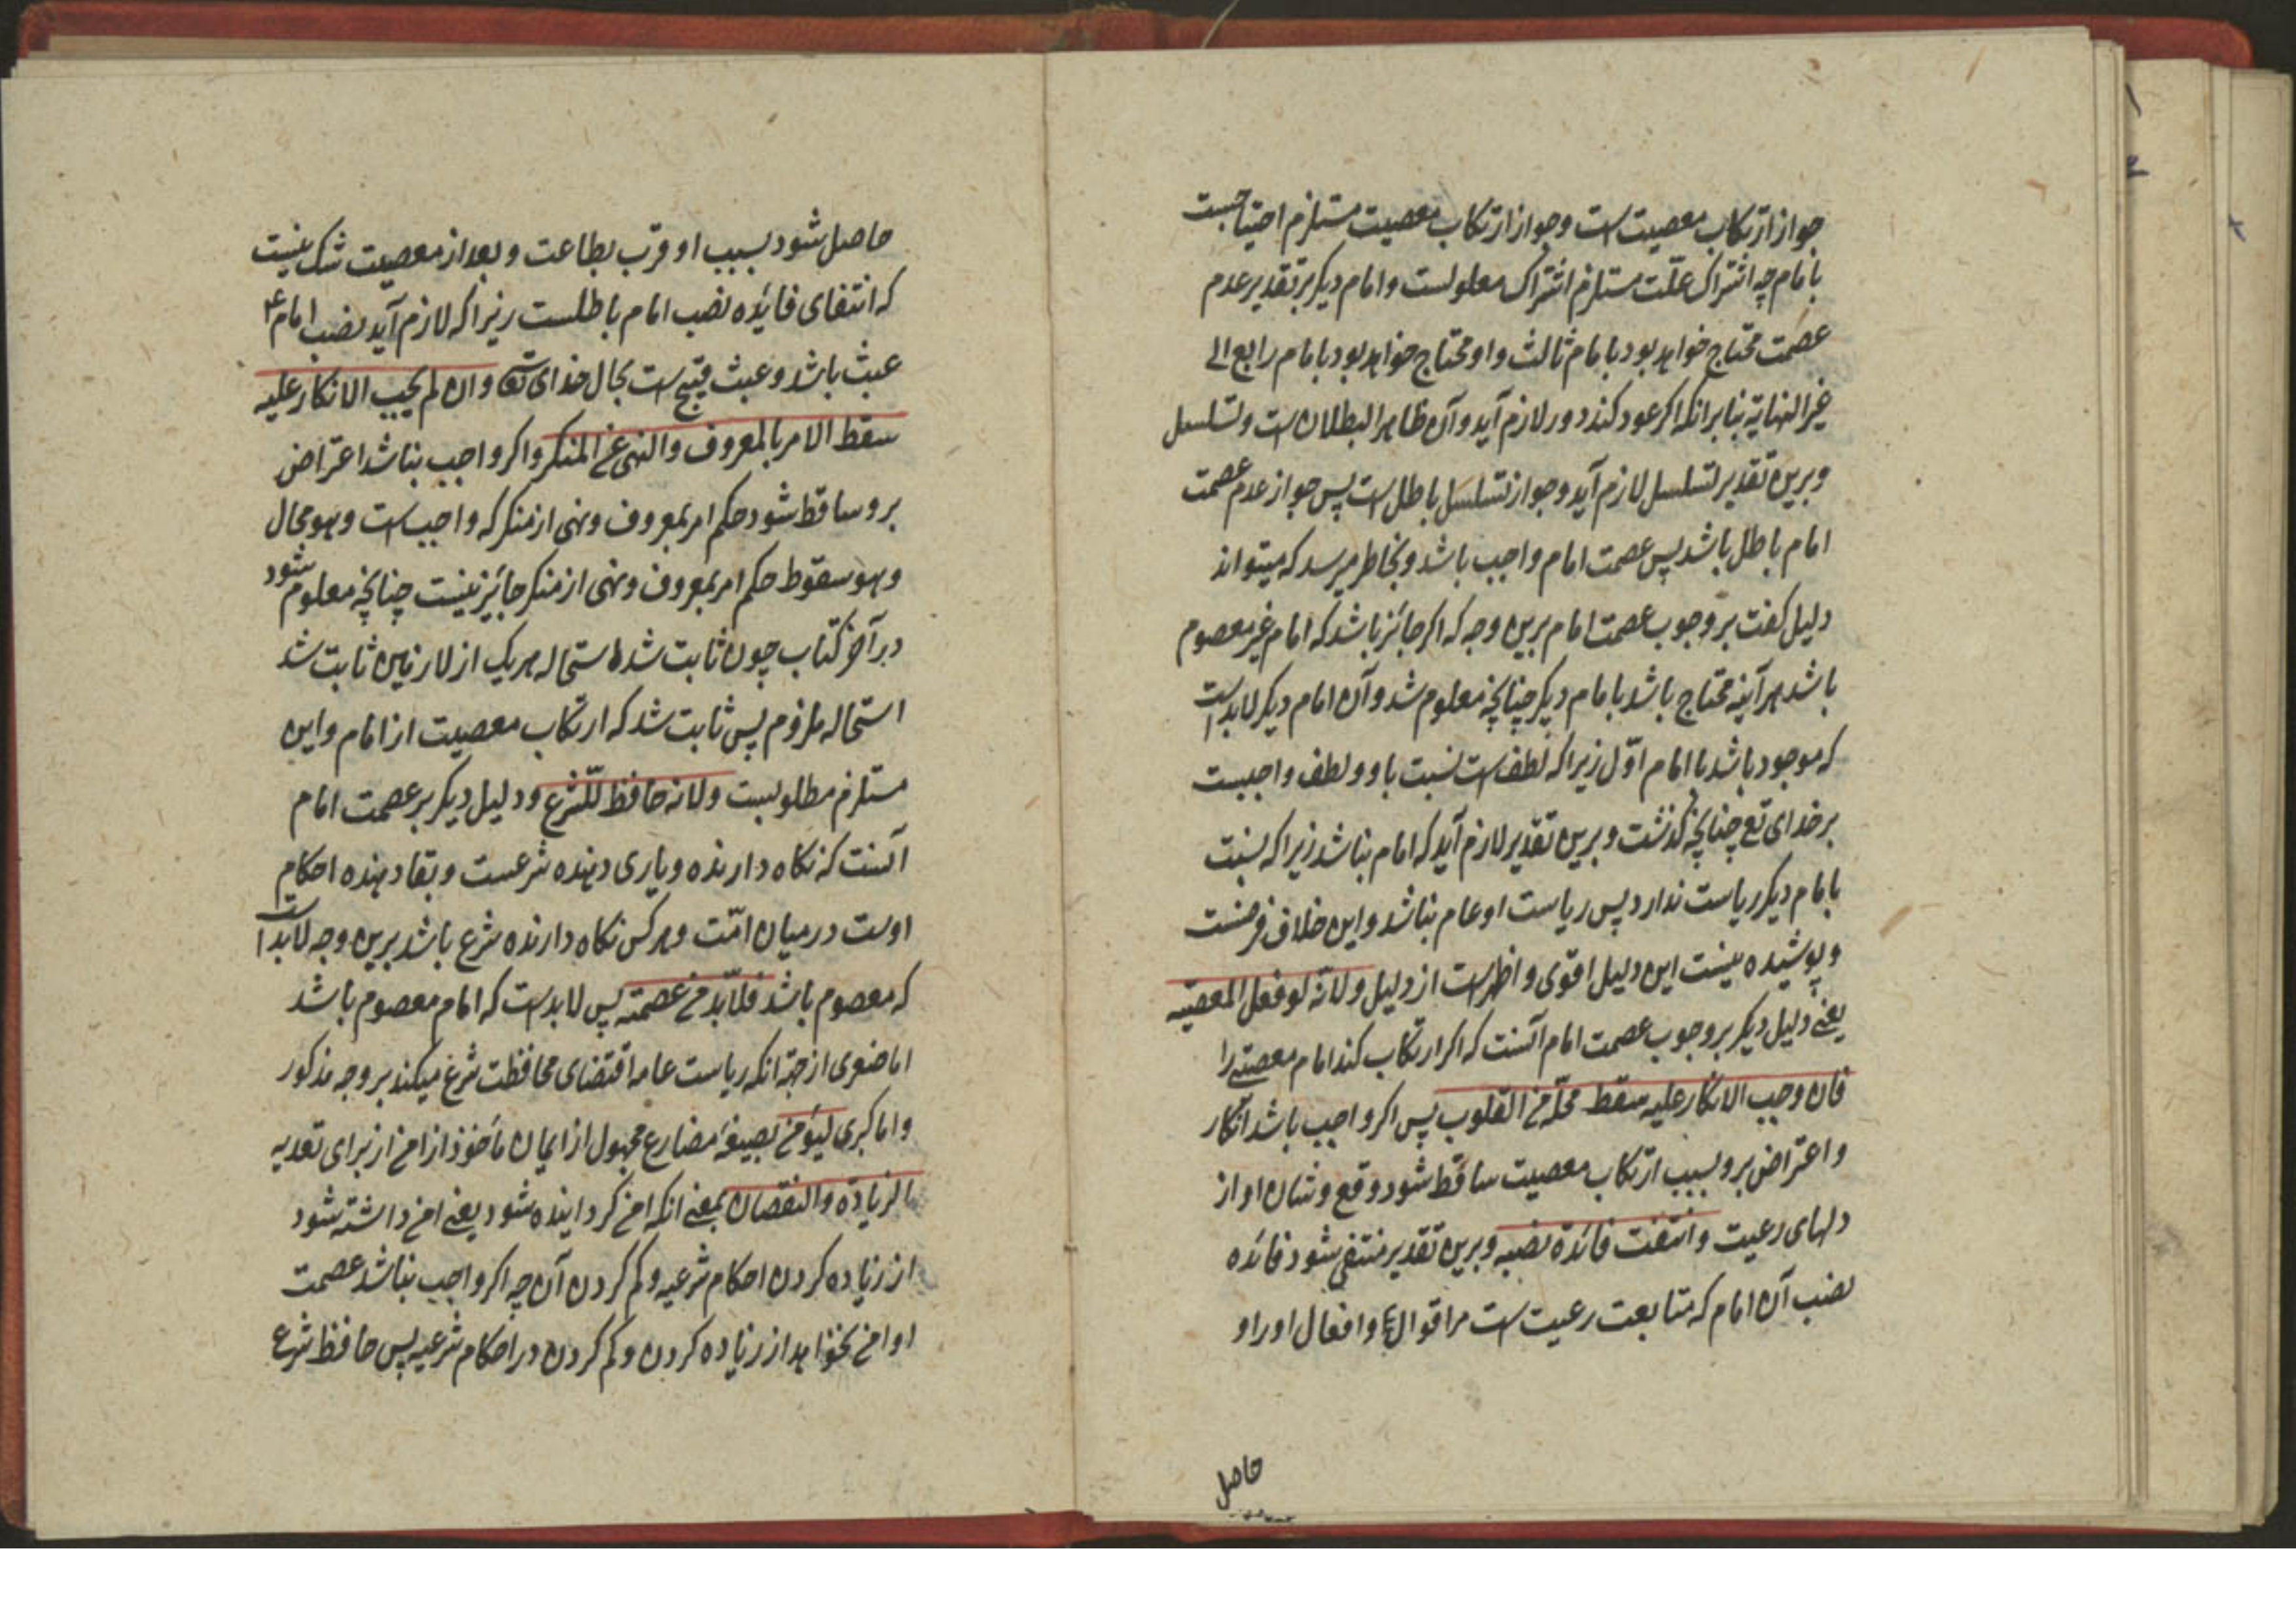 جواز ارتکاب معصیت است و جواز ارتکاب معصیت مستلزم احتیاجست
بامام چه اشتراک علّت مستلزم اشتراک معلولست و امام دیکر بر تقدیر عدم
عصمت محتاج خواهد بود بامام ثالث و او محتاج خواهد بود بامام رابع الی
غیر النهایة بنا بر انکه اکر عود کند دور لازم آید و آن ظاهر البطلان است و تسلسل
و برین تقدیر تسلسل لازم آید و جواز تسلسل باطل است پس جواز عدم عصمت
امام باطل باشد پس عصمت امام واجب باشد و بخاطر میرسد که میتواند
دلیل کفت بر وجوب عصمت امام برین وجه که اکر جائز باشد که امام غیر معصوم
باشد هر آینه محتاج باشد بامام دیکر چنانچه معلوم شد و آن امام دیکر لابد است
که موجود باشد با امام اوّل زیرا که لطف است نسبت باو و لطف واجبست
بر خدای تع چنانچه کذشت و برین تقدیر لازم آید که امام نباشد زیرا که نسبت
بامام دیکر ریاست ندارد پس ریاست او عام نباشد و این خلاف فرضست
و پوشیده نیست این دلیل اقوی و اظهر است از دلیل و لانّه لو فعل المعصیّه
یعنی دلیل دیکر بر وجوب عصمت امام آنست که اکر ارتکاب کند امام معصیتی را
فان وجب الانکار علیه سقط محلّه من القلوب پس اکر واجب باشد انکار
و اعتراض برو بسبب ارتکاب معصیت ساقط شود وقع و شان او از
دلهای رعیت و انتفت فائدة نصبه و برین تقدیر منتفی شود فائده
نصب آن امام که متابعت رعیت است مر اقوال و افعال او را و
حاصل
حاصل شود بسبب او قرب بطاعت و بعد از معصیت شک نیست
که انتفای فائده نصب امام باطلست زیرا که لازم آید نصب امام ع
عبث باشد و عبث قبیح است بحال خدای تع و ان لم یجب الانکار علیه
سقط الامر بالمعروف و النهی عن المنکر و اکر واجب نباشد اعتراض
برو ساقط شود حکم امر بمعروف و نهی از منکر که واجب است و هو محال
و هو سقوط حکم امر بمعروف و نهی از منکر جائیز نیست چنانچه معلوم شود
در آخر کتاب چون ثابت شد استحاله هر یک از لازمین ثابت شد
استحاله ملزوم پس ثابت شد که ارتکاب معصیت از امام و این
مستلزم مطلوبست و لانه حافظ للشرع و دلیل دیکر بر عصمت امام
آنست که نکاه دارنده و یاری دهنده شرعست و بقا دهنده احکام
اوست در میان امّت و هر کس نکاه دارنده شرع باشد برین وجه لابد است
که معصوم باشد فلابّد من عصمته پس لابد است که امام معصوم باشد
اما صغری از جهة انکه ریاست عامه اقتضای محافظت شرع میکند بر وجه مذکور
و اما کبری لیؤمن بصیغه مضارع مجهول از ایمان مأخوذ از امن از برای تعدیه
الزیادة و النقصان بمعنی انکه امن کردانیده شود یعنی امن داشته شود
از زیاده کردن احکام شرعیه و کم کردن آن چه اکر واجب نباشد عصمت
او امن نخواهد از زیاده کردن و کم کردن در احکام شرعیه پس حافظ شرع